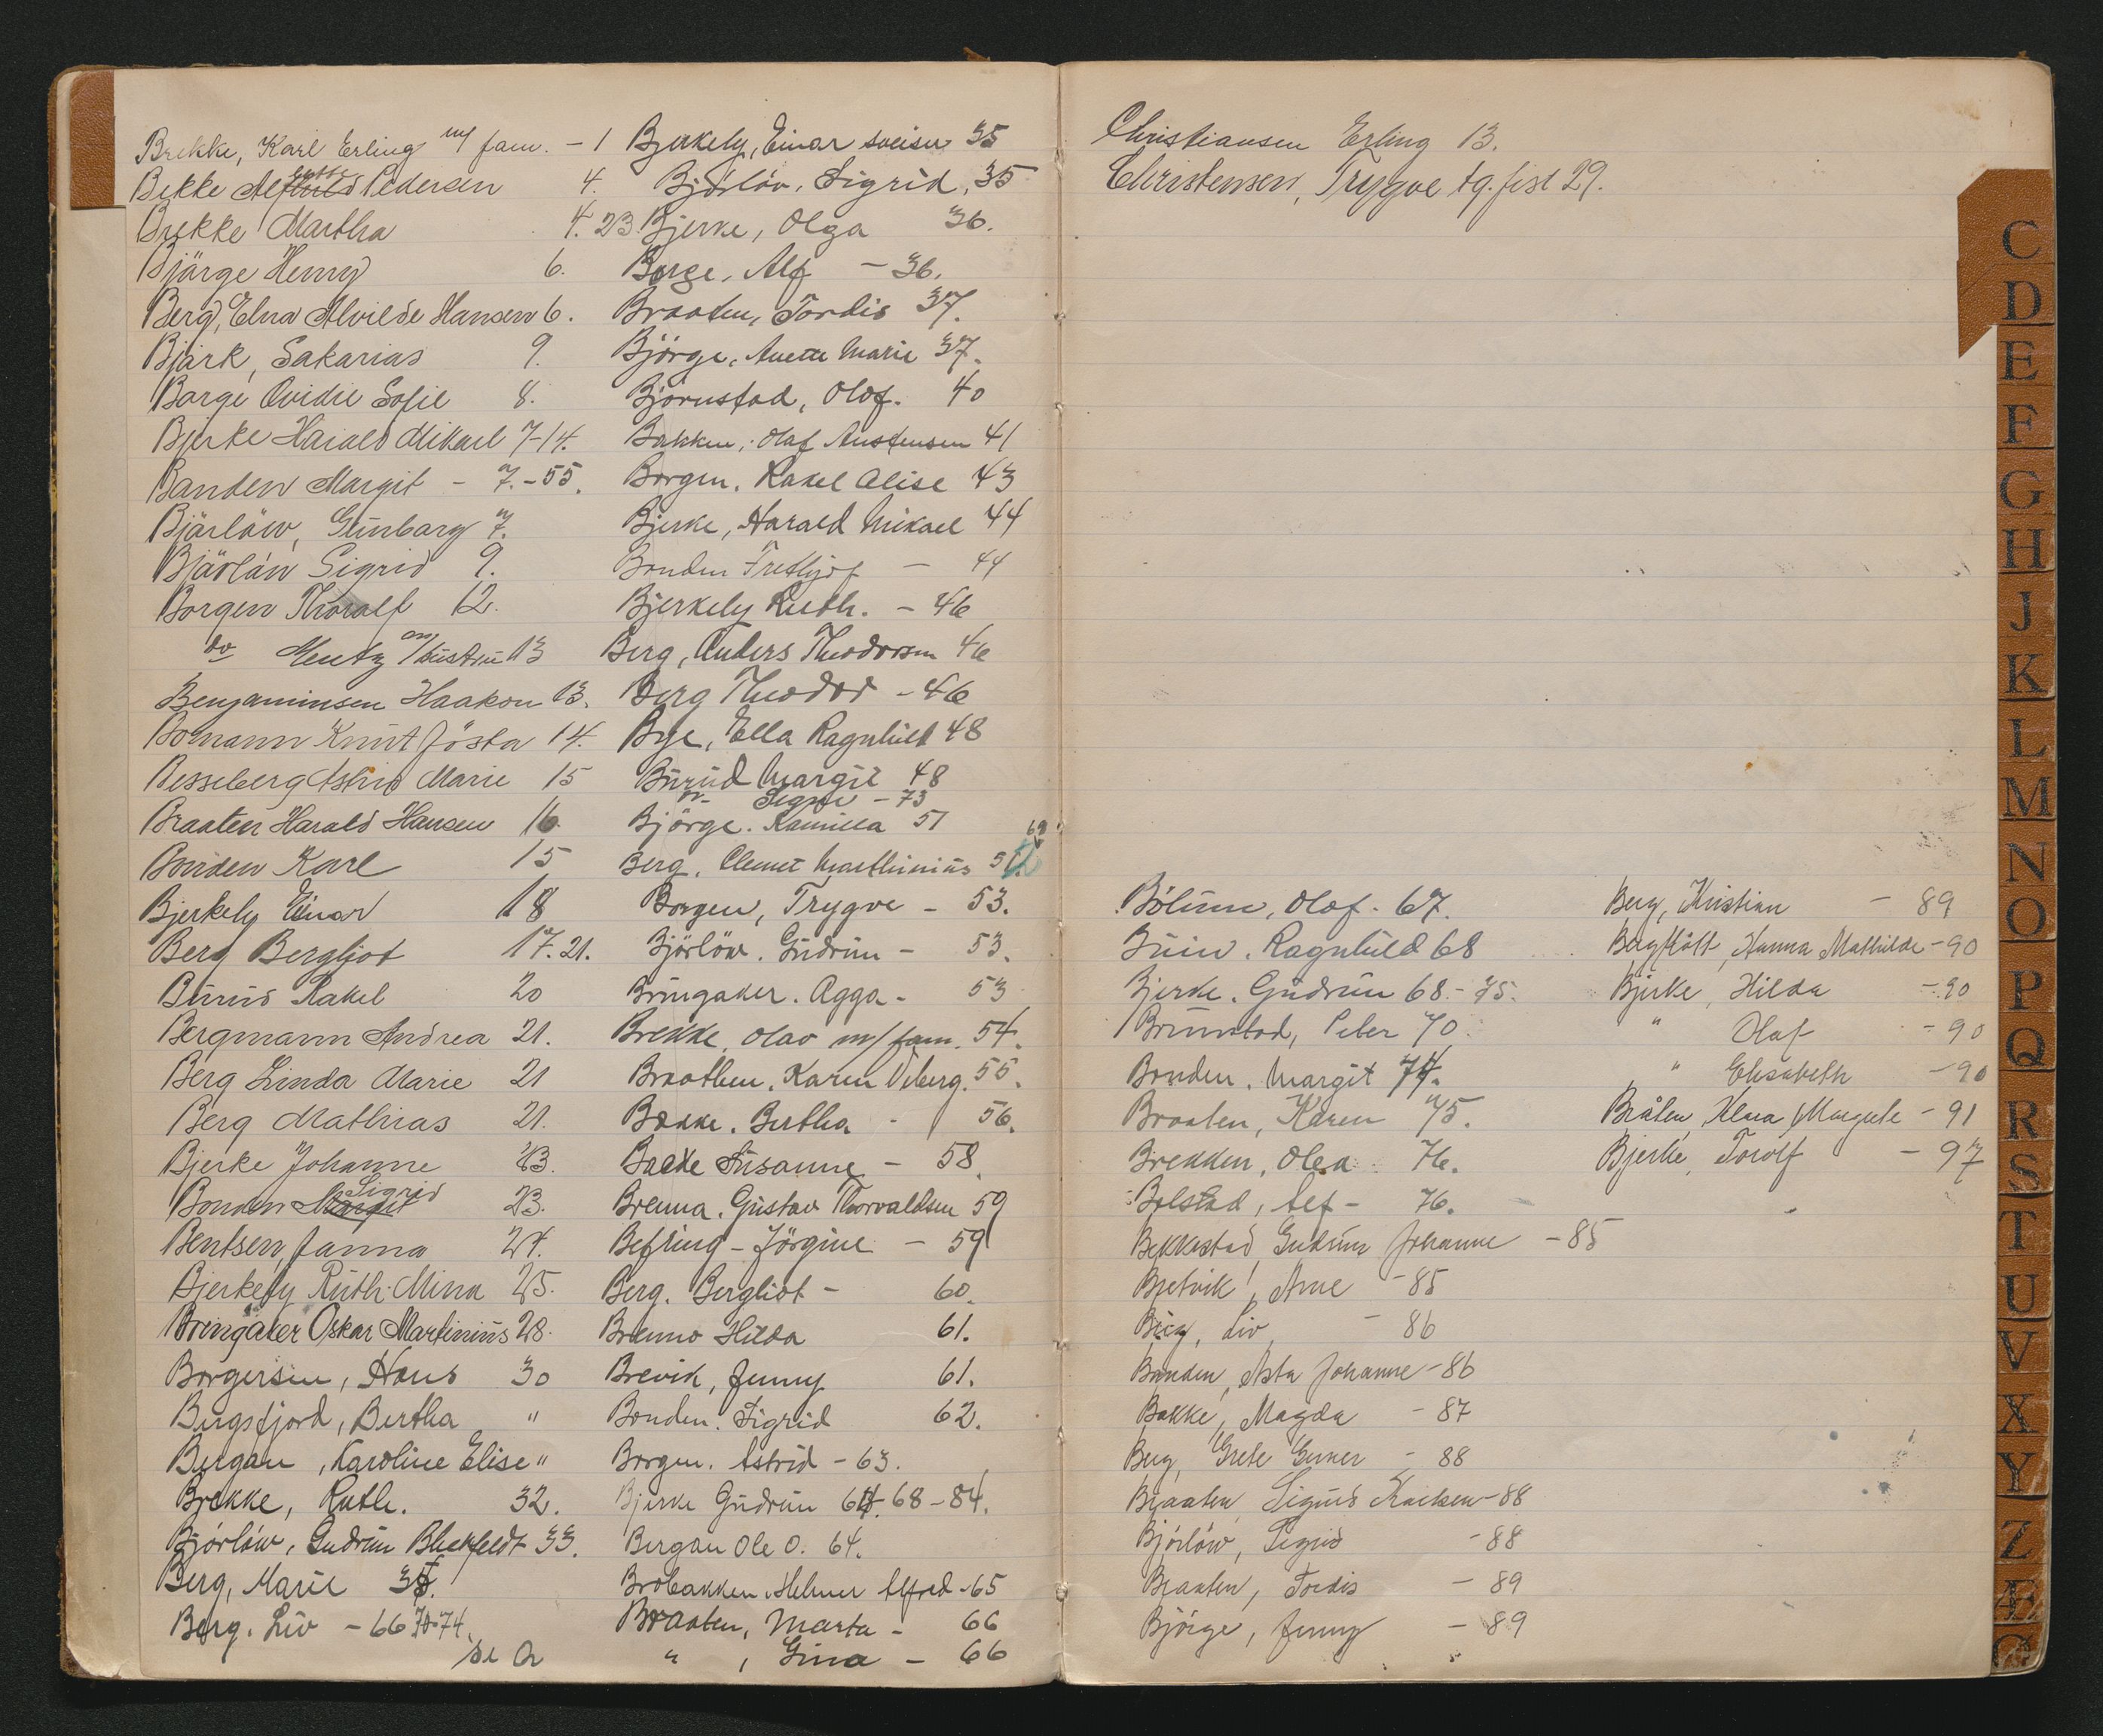 Brekke, Karl Erling m/ fam. - 1
Bekke Pedersen 4.
Brekke Martha 4. 23
Bjärge Henry 6.
Berg, Elna Alvilde Hansen 6.
Bjärk, Sakarias 9.
Barge Ovidie Sofie 8.
Bjerke Harald Mikael 7-14.
Banden Margit - 7.-55.
Bjärläw, Günbarg 7.
Bjärläw Sigrid 9.
Borgen Thoralf 12.
do Mentz m/ hustru 13
Benjaminsen Haakon 13.
Bomann Knut Jösta 14.
Besseberg Astrid Marie 15
Braaten Harald Hansen 16.
Bonden Karl 15
Bjerkely Einar 18
Berg Bergljot 17. 21.
Burud Rakel 20
Bergmann Andrea 21.
Berg Linda Marie 21
Berg Mathias 21.
Bjerke Johanne 23.
Bonden Margit Sigrid 23.
Bentsen, Janna 24.
Bjerkely Ruth Mina 25.
Bringaker Oskar Martinius 28.
Borgersen, Hans 30
Bergsfjord, Bertha "
Bergan, Karoline Elise "
Brekke, Ruth. 32.
Bjórlów, Gudrun Blekfeldt 33.
Berg, Marie
Berg. Liv - 66 70-74.
Bjerkely, Einar sveiser 35
Bjórlóv, Sigrid, 35
Bjerke, Olga 36.
Borge, Alf - 36.
Braaten, Tordis 37.
Björge, Anette Marie 37.
Björnstad, Olaf. 40
Bakken, Olaf Austensen 41
Borgen. Rakel Alise 43
Bjerke, Harald Mikael 44
Bonden Frethjof - 44
Bjerkely Ruth. - 46
Berg, Anders Theodorsen 46
Berg Theodor - 46
Bye, Ella Ragnhild 48
Burud Margit 48
" Signe - 73
Björge. Kamilla 51
Berg, Clemet Marthinius 51. 69
Borgen, Trygve - 53.
Björlöw. Gudrun - 53.
Bringaker. Agga - 53
Brekke, Olav m/ fam. 54.
Braathen. Karen Viberg. 55.
Bakke. Bertha - 56.
Bakke Susanne - 58.
Brenna. Gustav Thorvaldsen 59
Befring - Jörgine - 59
Berg. Bergliot - 60.
Brenno Hilda 61.
Brevik, Jenny 61.
Bonden. Sigrid 62.
Borgen. Astrid - 63.
Bjerke Gudrun 64. 68-84.
Bergan Ole O. 64.
Brobakken. Helmer Alfred - 65
Braaten, Marta - 66
" , Gina - 66
Christiansen Erling 13.
Christensen, Trygve tg. fist 29.
Bölum, Olaf. 67.
Buin. Ragnhild 68
Bjerke. Gudrun 68.- 75.
Brunstad, Peter 70.
Bonden. Margit 74.
Braaten, Karen 75.
Brekken, Olea 76.
Bolstad, Alf - 76.
Bekkestad, Gudrun Johanne - 85
Bretvik, Arne - 85
Berg, Liv - 86
Bonden, Asta Johanne - 86
Bakke, Magda - 87
Berg, Grete Gerner - 88
Braaten, Sigurd Karlsen - 88
Bjórlów, Sigrid - 88
Braaten, Tordis - 89
Björge, Jenny - 89
Berg, Kristian - 89
Hanna Mathilde - 90
Bjerke, Hilda - 90
" Olaf - 90
" Elisabeth - 90
Bråten, Margrete - 91
Bjerke, Torolf - 97
C
D
E
F
G
H
J
K
L
M
N
O
P
Q
R
S
T
U
V
X
Y
Z
Æ